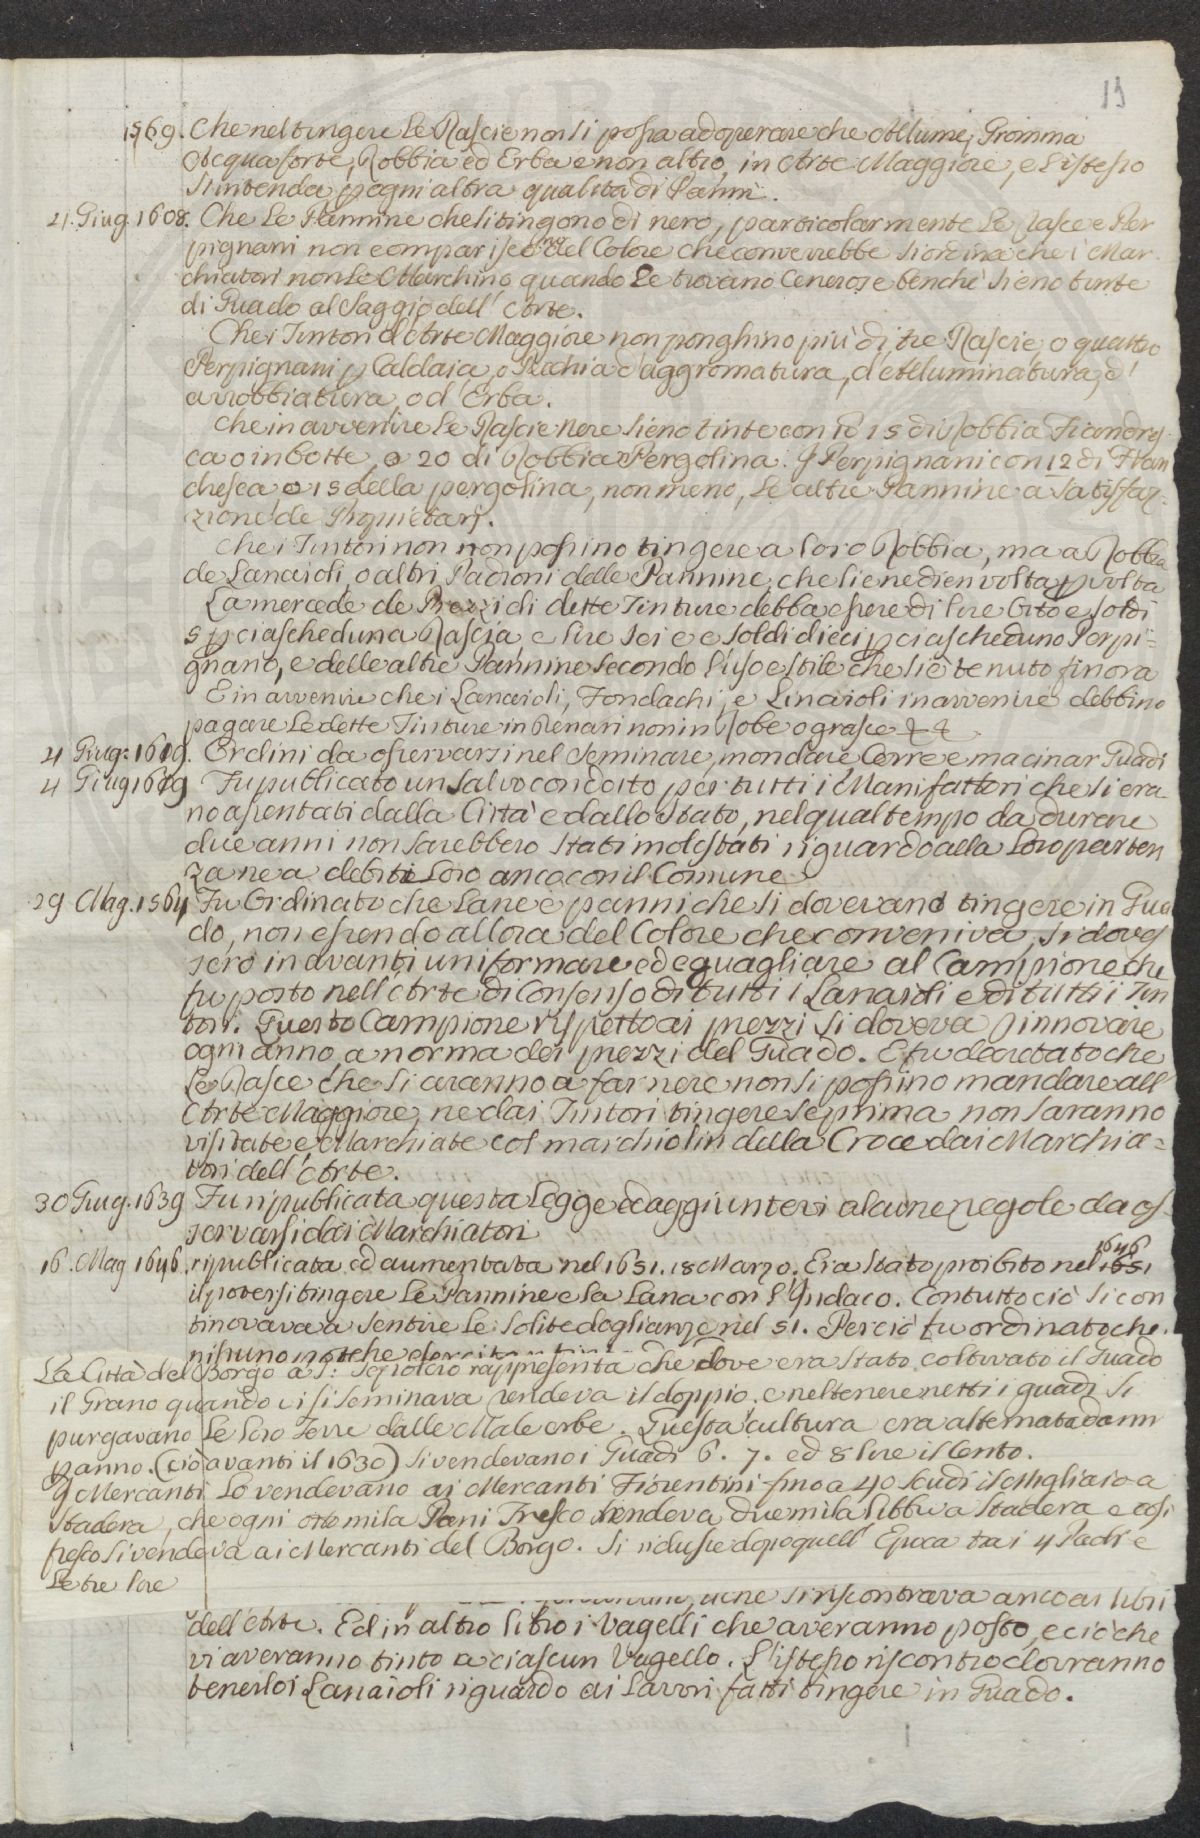 19
1569. Che nel tingere le Rascie non si possa adoperare che Allume, Gromma
Acqua forte, Robbia ed Erba e non altro, in Arte Maggiore, e l'istesso
s'intenda p ogni altra qualità di Panni.
21. Giug. 1608. Che le Pannine che si tingono di nero, particolarmente le Rasce e Per
pignani non compariscono del Colore che converrebbe si ordina che i Mar
chiatori non le Marchino quando le trovano Cenerose benchè sieno tinte
di Guado al Saggio dell'Arte.
Che i Tintori d'Arte Maggiore non ponghino più di tre Rascie, o quattro
Perpignani p Caldaia, o Rachia d'aggromatura, d'Alluminatura, d'
arrobbiatura, o d'Erba.
Che in avvenire le Rascie nere sieno tinte con lb 15 di Robbia Fiandres
ca o in botte, o 20 di Robbia Pergolina. I Perpignani con 12 di Fian
dresca o 15 della pergolina, non meno, le altre Pannine a satisfaz=
zione de Propietarj.
Che i Tintori non non possino tingere a loro Robbia, ma a Robbia
de Lanaioli, o altri Padroni delle Pannine, che lie ne dien volta p volta
La mercede de Prezzi di dette Tinture debba essere di lire Otto e soldi
5 p ciascheduna Rascia, e lire sei e e soldi dieci p ciascheduno Perpi=
gnano, e delle altre Pannine secondo l'uso e stile che si è tenuto finora
E in avvenire che i Lanaioli, Fondachi, e Linaioli in avvenire debbino
pagare le dette Tinture in Denari non in Robe o grasce & &
4 Giug: 1619. Ordini da osservarsi nel Seminare, mondare Corre e macinar Guadi
4 Giug 1619 Fu publicato un salvo condotto per tutti i Manifattori che si era
no assentati dalla Città e dallo Stato, nel qual tempo da durare
due anni non sarebbero stati molestati riguardo alla loro parten
za ne a debiti loro anco con il Comune
29 Mag. 1564 Fu Ordinato che Lane e panni che si dovevano tingere in Gua
do, non essendo allora del Colore che conveniva, si doves
sero in avanti uniformare ed eguagliare al Campione che
fu posto nell'Arte di Consenso di tutti i Lanaioli e di tutti i Tin
tori. Questo Campione rispetto ai prezzi si doveva rinnovare
ogni anno a norma dei prezzi del Guado. E fu decretato che
le Rasce che si aranno a far nere non si possino mandare all'
Arte Maggiore, ne dai Tintori tingere se prima non saranno
visitate e Marchiate col marchiolin della Croce dai Marchia=
tori dell'Arte.
30 Giug. 1639 Fu ripublicata questa Legge ed aggiuntevi alcune regole da os
servarsi dai Marchiatori
16. Mag 1646. ripublicata ed aumentata nel 1651. 18 Marzo. Era stato proibito nel 1651 1646
il potersi tingere le Pannine e la Lana con l'Indaco. Contuttociò si con
tinovava a sentire le solite doglianze nel 51. Perciò fu ordinato che
nissuno potesse
La Città del Borgo a S: Sepolcro rappresenta che dove era stato coltivato il Guado
il Grano quando vi si seminava rendeva il doppio, e nel tenere netti i guadi si
purgavano le loro Terre dalle Male erbe. Questa cultura era alternata d'ann
p anno. (ciò avanti il 1630) si vendevano i Guadi 6. 7. ed 8 lire il Cento.
I Mercanti lo vendevano ai Mercanti Fiorentini fino a 40 scudi il Migliaio a
stadera, che ogni otto mila Pani Fresco rendeva due mila libbre a stadera e così
fresco si vendeva ai Mercanti del Borgo. Si ridusse dopo quell'Epoca tra i 4 Paoli e
le tre lire
si riscontrava anco ai libri
dell'Arte. Ed in altro libro i Vagelli che averanno posto, e ciò che
vi averanno tinto a ciascun Vagello. L'istesso riscontro dovranno
tenerlo i Lanaioli riguardo ai Lavori fatti tingere in Guado.